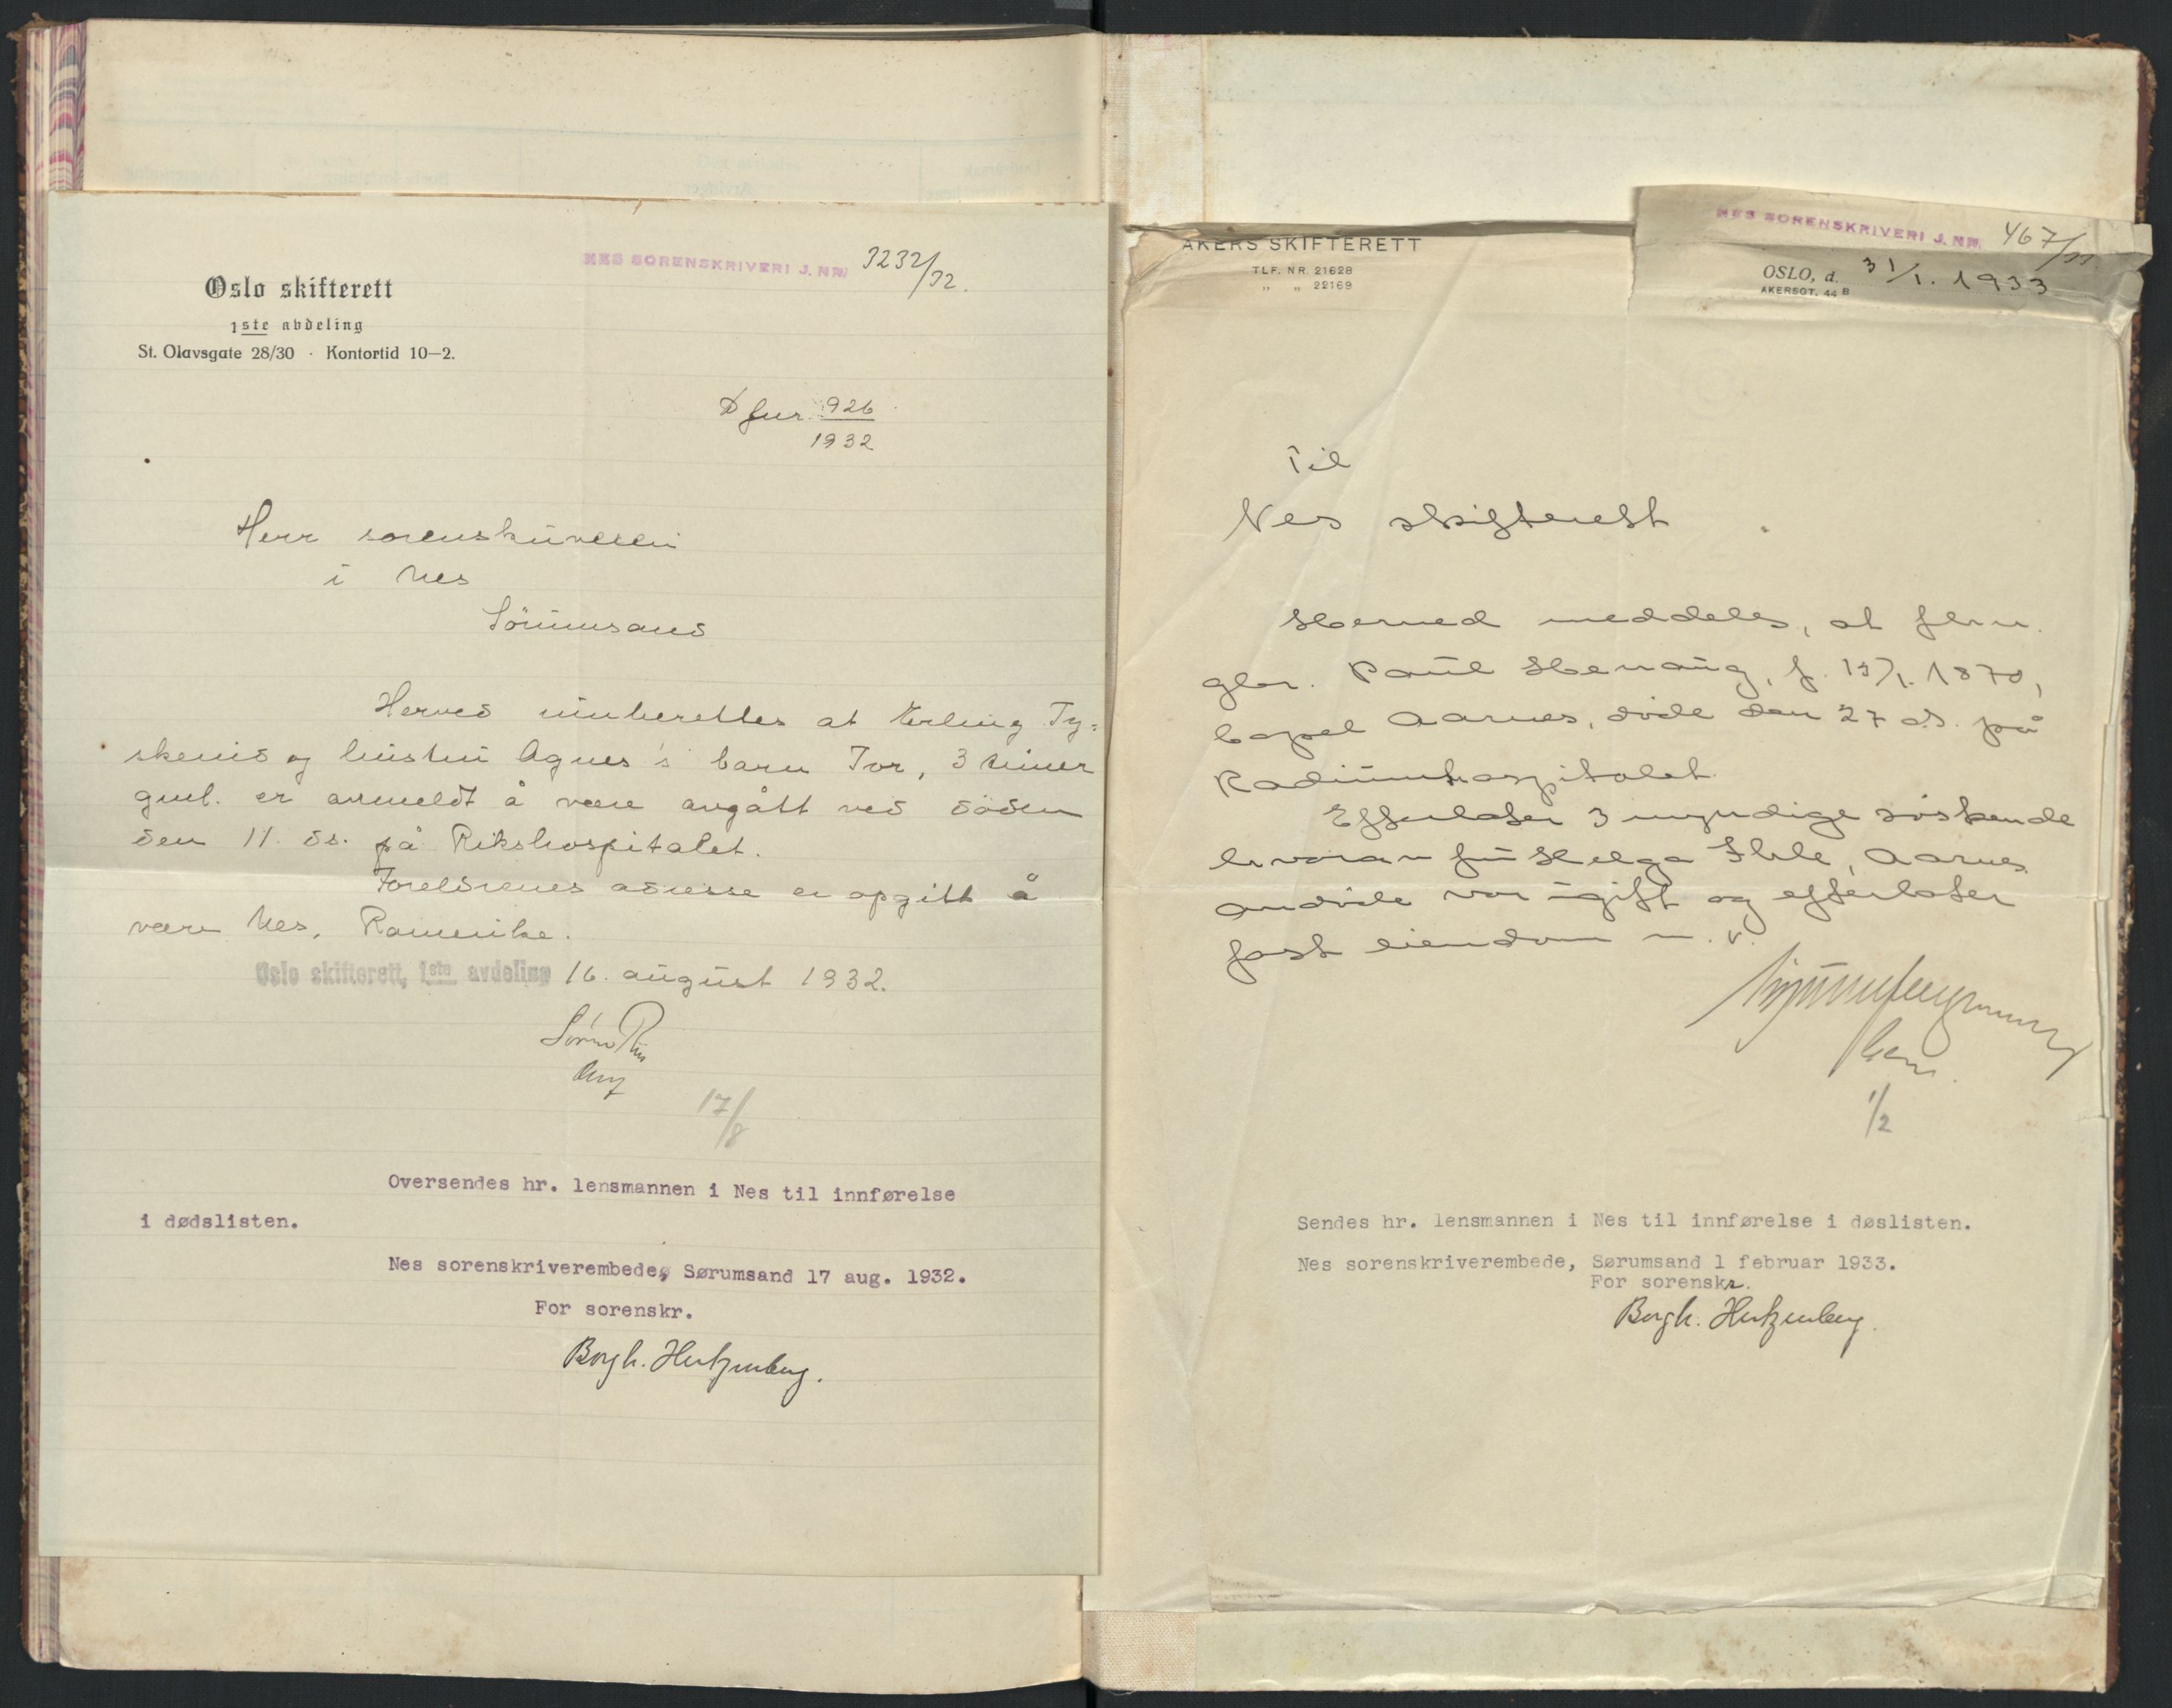 NES SORENSKRIVERI J. NR. 3232/32.
Oslo skifterett
1ste avdeling
St. Olavsgate 28/30 · Kontortid 10—2.
D jur 926
1932
Herr sorenskriveren
i Nes
Sörumsand
Herved innberettes at Erling Ty=
skerud og hustru Agnes's barn Tor, 3 timer
gml. er anmeldt å være avgått ved döden
den 11. ds. på Rikshospitalet.
Foreldrenes adresse er opgitt å
være Nes, Romerike.
Oslo skifterett, 1ste avdeling 16. august 1932.
17/8
Oversendes hr. lensmannen i Nes til innførelse
i dødslisten.
Nes sorenskriverembede, Sørumsand 17 aug. 1932.
For sorenskr.
Borgh. Hertzenberg.
NES SORENSKRIVERI J. NR. 467/33
AKERS SKIFTERETT
TLF. NR. 21628
„ „ 22169
OSLO, d. 31/1. 1933
AKERSGT. 44 B
Til
Nes skifterett
Herved meddeles, at fhv.
gbr. Paul Henaug, f. 15/1. 1870,
bopel Aarnes, döde den 27 ds. på
Radiumhospitalet.
Efterlater 3 myndige söskende
hvorav fru Helga Ihle, Aarnes.
Avdöde var ugift og efterlater
fast eiendom m. v.
1/2
Sendes hr. lensmannen i Nes til innførelse i døslisten.
Nes sorenskriverembede, Sørumsand 1 februar 1933.
For sorenskr.
Borgh. Hertzenberg.